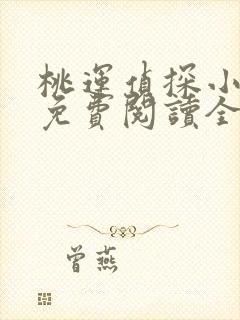 桃運偵探小
免費閱讀全
曾燕